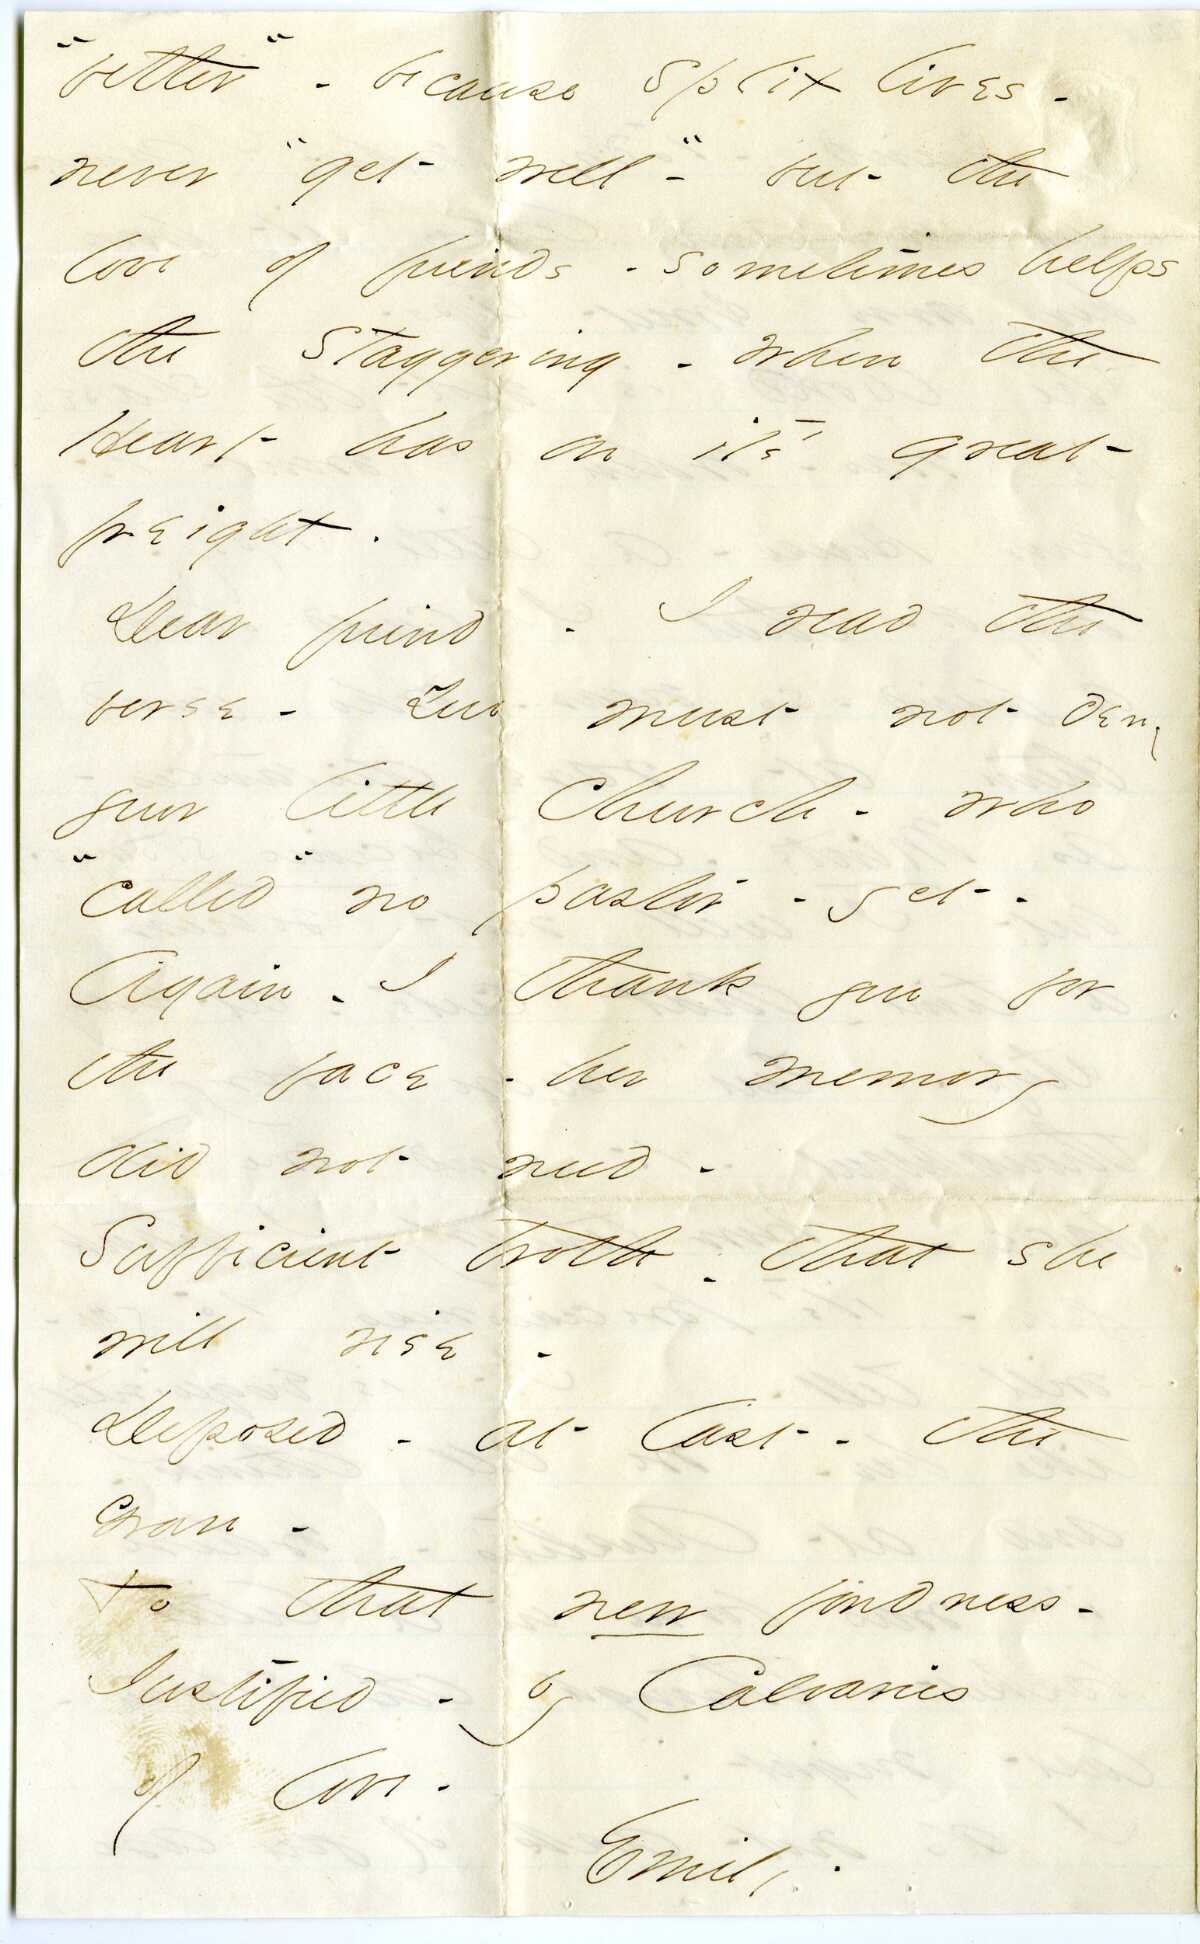 "better" - because split lives -
never "get well" - but the
love of friends - sometimes helps
the Staggering - when the
Heart has on it's great
freight.
Dear friend - I read the
verse - You must not deny
your little Church - who
"called" no pastor - yet -
Again - I thank you for
the face - her memory
did not need -
Sufficient troth - that she
will rise -
Deposed - at last - the
Grave -
To that new fondness -
Justified - by Calvaries
of love -
Emily.